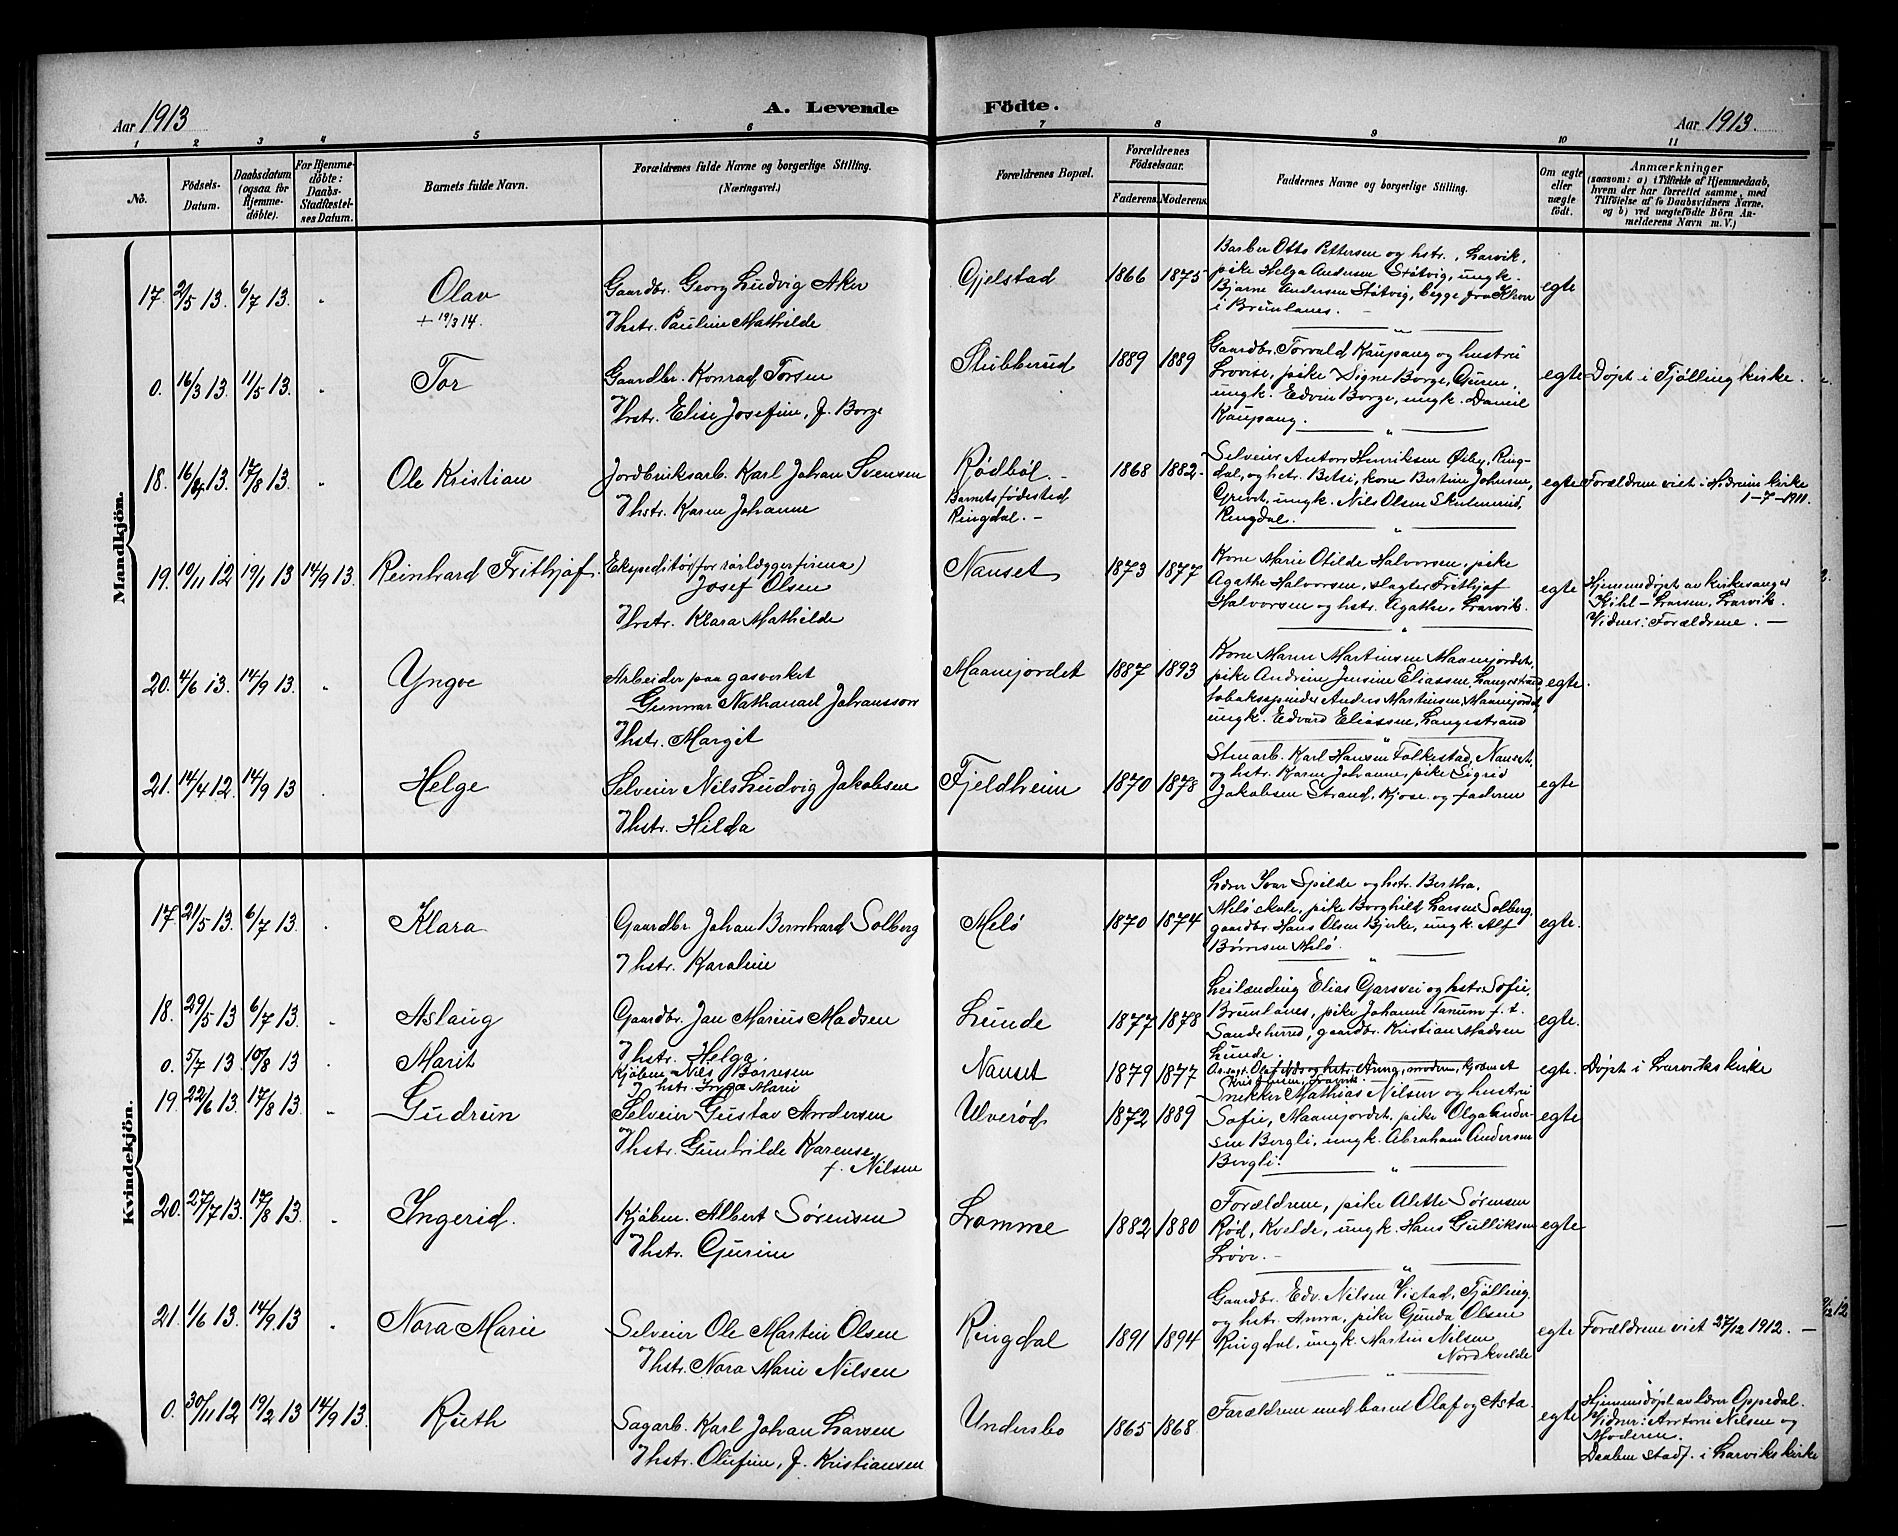 Aar 1913
A. Levende
Födte.
Aar 1913.
1 2 3 4 5 6 7 8 9 10 11
No.
Födsels-Datum.
Daabsdatum (ogsaa for Hjemme-døbte).
For Hjemme-døbte: Daabs-Stadfæstel-ses Datum.
Barnets fulde Navn.
Forældrenes fulde Navne og borgerlige Stilling.
(Næringsvei.)
Forældrenes Bopæl.
Forældrenes Födselsaar.
Faderens.
Moderens.
Faddernes Navne og borgerlige Stilling.
Om ægte eller uægte födt.
Anmærkninger
(saasom: a) i Tilfælde af Hjemmedaab,
hvem der har forrettet samme, med
Tilföielse af to Daabsvidners Navne,
og b) ved uægtefödte Börn An-
melderens Navn m. V.)
Mandkjön.
17. 2/5 13. 6/7 13. " Olav
+ 19/3 14.
Gaardbr. Georg Ludvig Aker
Hstr. Pauline Mathilde
Gjelstad 1866 1875
Barber Otto Pettersen og hstr., Larvik,
pike Helga Andersen Støtvig, ungk.
Bjarne Andersen Støtvig, begge fra
i Brunlanes. -
egte
0. 16/3 13. 11/5 13. " Tor
Gaardbr. Konrad Torsen
Hstr. Elise Josefine, f. Borge
Stubberud 1889 1889
Gaardbr. Torvald Kaupang og hustru
Lovise, pike Signe Borge, Guren,
ungk. Edvin Borge, ungk. Daniel
Kaupang.
egte Døpt i Tjølling kirke.
18. 16/4 13. 17/8 13. " Ole Kristian
Jordbruksarb. Karl Johan Svensen
Hstr. Karen Johanne
Rødbøl. -
Barnets fødested
Ringdal. -
1868 1882
Selveier Anton Henriksen Øsby, Ring-
dal, og hstr. Betsi, kone Bertine Johnsen,
ungk. Nils Olsen
Ringdal.
egte Forældrene viet i Hedrum kirke
1-7-1911.
19. 10/11 12 19/1 13 14/9 13. Reinhard Frithjof.
Ekspeditør (for rørlæggerfirma)
Josef Olsen
Hstr. Klara Mathilde
Nanset 1873 1877
Kone Marie Otilde Halvorsen, pike
Agathe Halvorsen, slagter Frithjof
Halvorsen og hstr. Agathe, Larvik.
egte
Hjemmedøpt av kirkesanger
Kihl-Larsen, Larvik.
Vidner: Forældrene. -
20. 4/6 13. 14/9 13. " Yngve
Arbeider paa gasverket
Gunnar Nathanael Johansson
Hstr. Margit
Maanejordet 1887 1893
Kone Maren Martinsen Maanejordet,
pike Andrine Jensine Eliassen, Langestrand,
tobaksspinder Anders Martinsen, Maanejordet,
ungk. Edvard Eliassen, Langestrand
egte.
21. 14/4 12. 14/9 13 . Helge
Selveier Nils Ludvig Jakobsen
Hstr. Hilda
Fjeldheim 1870 1878
Stenarb. Karl Hansen Falkestad, Nanset,
og hstr. Karen Johanne, pike Sigrid
Jakobsen Strand, Kjose og faderen
egte
Kvindekjön.
17. 21/5 13. 6/7 13. . Klara
Gaardbr. Johan Bernhard Solberg
Hstr. Karoline
Melø 1870 1874
Lærer Ivar Spilde og hstr. Bertha,
Melø skole, pike Borghild Larsen Solberg,
gaardbr. Hans Olsen Bjerke, ungk. Alf
Børresen Melø.
egte.
18. 29/5 13 6/7 13. . Aslaug
Gaardbr. Jan Marius Madsen
Hstr. Helga.
Lunde 1877 1878
Leilænding Elias Garsvei og hstr. Sofie,
Brunlanes, pike Johanne Tanum f. t.
Sandeherred, gaardbr. Kristian Madsen
Lunde.
egte.
0. 5/7 13. 10/8 13 Marit
Kjøbm. Nils Børresen
Hstr. Inga Marie
Nanset 1879 1877
egte. Døpt i Larviks kirke
19. 22/6 13. 17/8 13. " Gudrun
Selveier Gustav Andersen
og
Hstr. Gunhilde Karense,
f. Nilsen
Ulverød 1872 1889
Snekker Mathias Nilsen og hustru
Sofie, Maanejordet, pike Olga Ander-
sen Bergli, ungk. Abraham Andersen
Bergli.
egte
20. 27/7 13. 17/8 13. . Ingerid.
Kjøbm. Albert Sørensen
Hstr. Gurine
Lamme 1882 1880
Forældrene, pike Alette Sørensen
Rød, Kvelde, ungk. Hans Gulliksen
egte
21. 1/6 13. 14/9 13 " Nora Marie
Selveier Ole Martin Olsen
og
Hstr. Nora Marie Nilsen
Ringdal 1891 1894
Gaardbr. Edv. Nilsen Vistad, Tjølling,
og hstr. Anna, pike Gunda Olsen
Ringdal, ungk. Martin Nilsen
Nordkvelde
egte Forældrene viet 27/12 1912. -
0. 30/11 12 19/2 13 14/9 13. Ruth
Sagarb. Karl Johan Larsen
Hstr. Olufine, f. Kristiansen
Undersbo 1865 1868.
Forældrene med barnet Olaf og Asta.
egte
Hjemmedøpt av lærer Oppedal.
Vidner: Antoni Nilsen og
Moderen.
Daaben stadf. i Larviks kirke